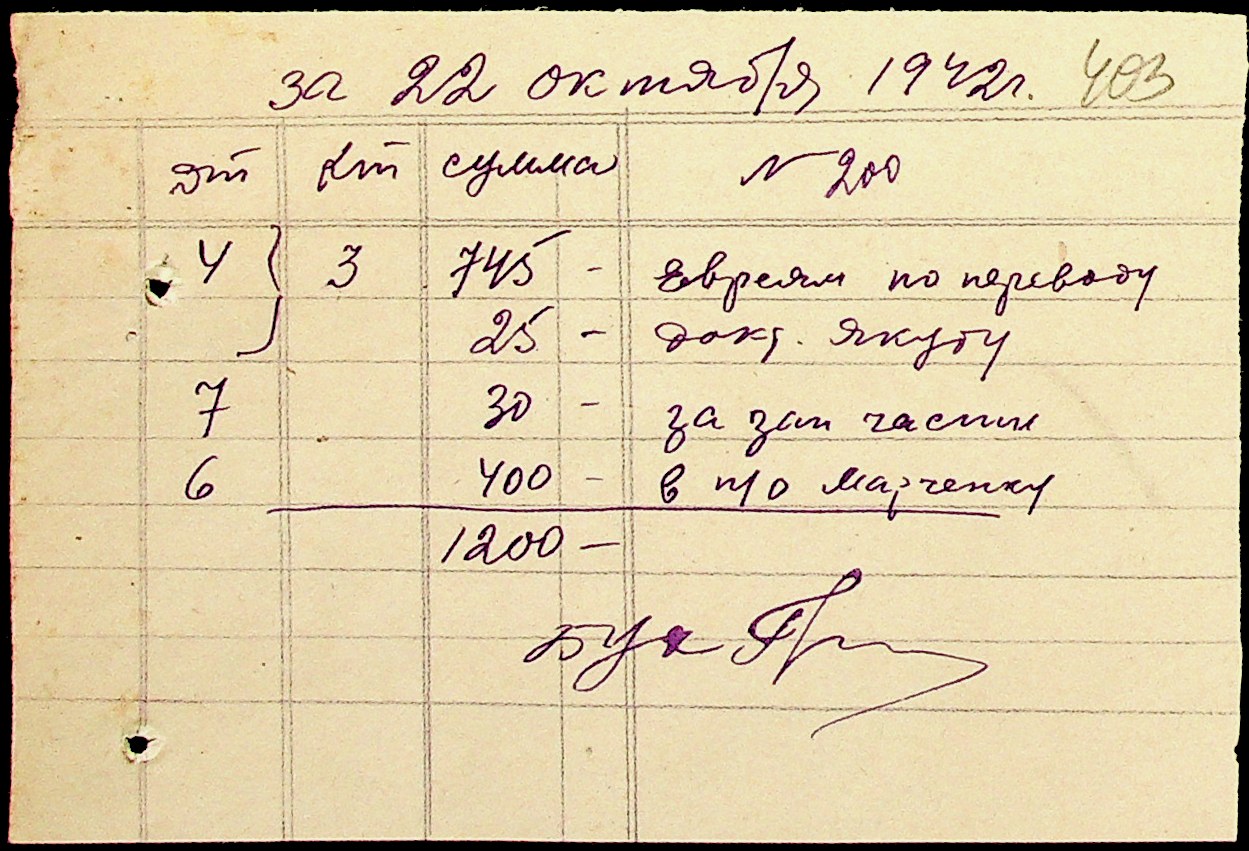 за 22 октября 1942г. 403
Дт Кт сумма N 200
4 } 3 745 - евреям по переводу
25 - докт. Якубу
7 30 - за зап части
6 400 - в п/о Марченку
1200 -
Бух